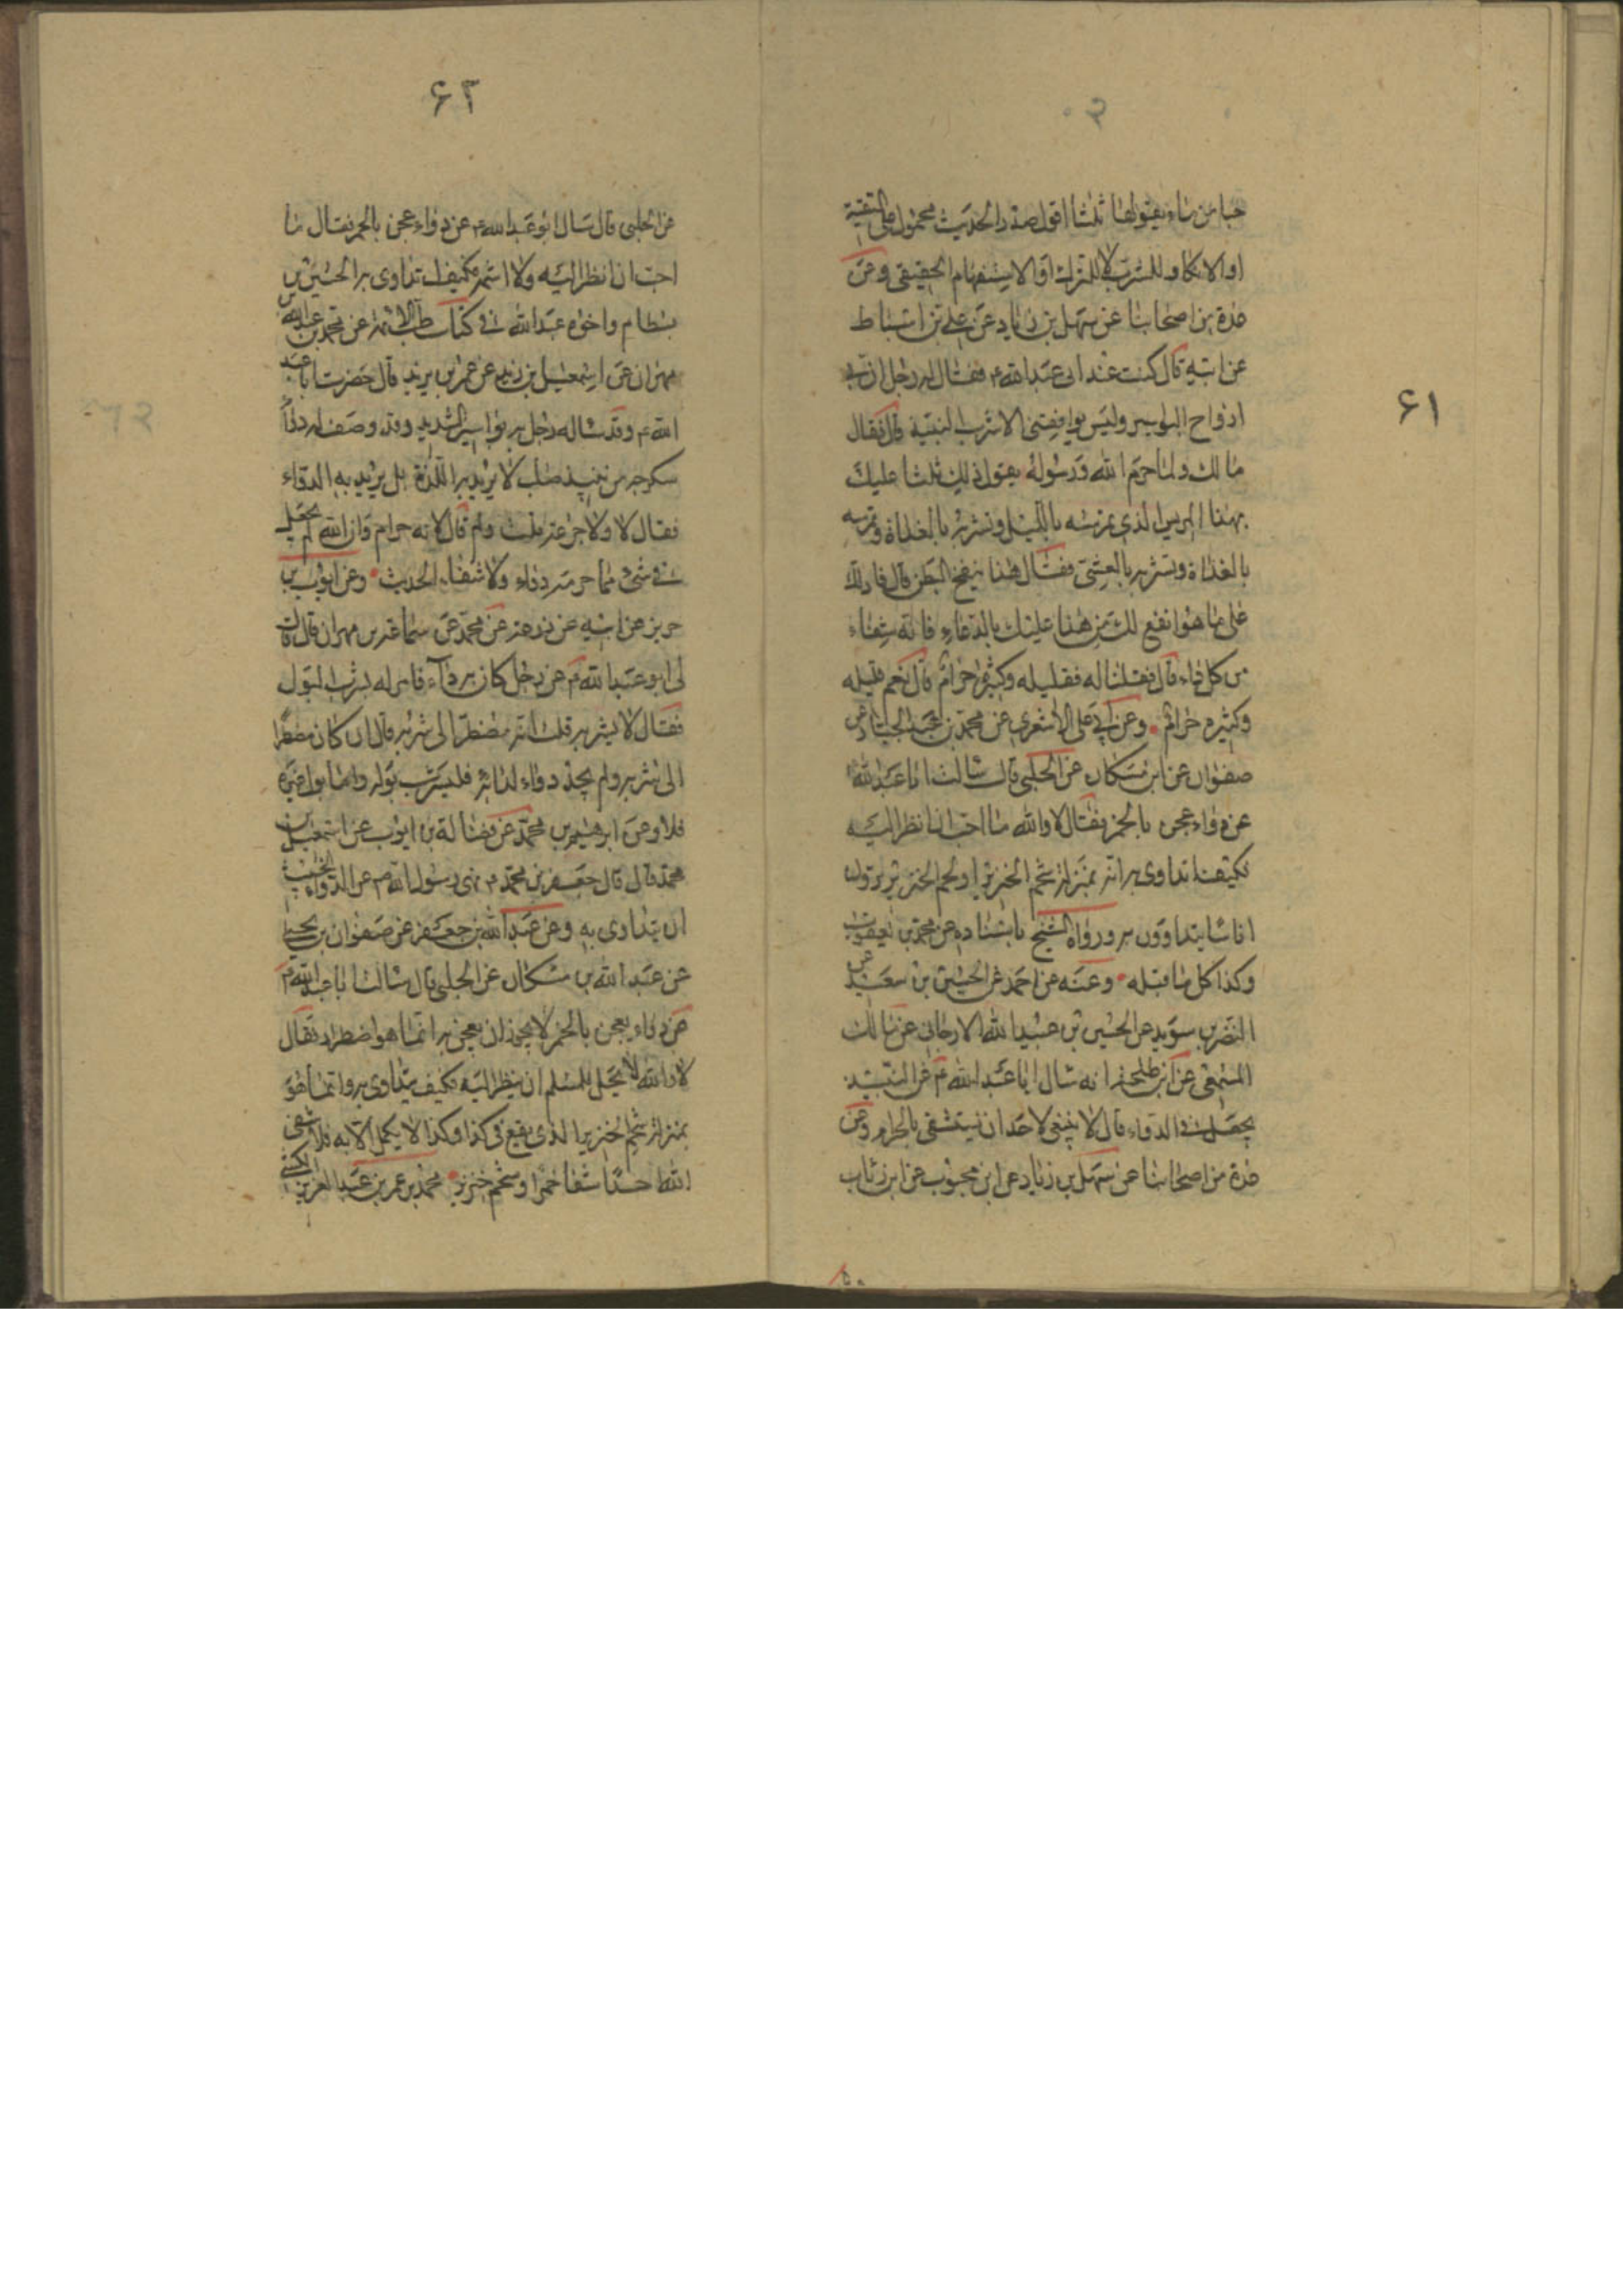 ۶۱
حبا من ماء يقولها ثلثا اقول صدر الحديث محمول على التقية
او الانكار للشرب لا للترك او الاستفهام الحقيقى وعن
عدة من اصحابنا عن سهل بن زياد عن على بن اسباط
عن ابيه قال كنت عند ابى عبد الله ء فقال له رجل ان بى
ارواح البواسير وليس يوافقنى الا شرب النبيذ قال فقال
مالك ولما حرم الله ورسوله يقول ذلك ثلثا عليك
بهذا المريس الذى تمرسه بالليل وتشربه بالغداة وتمرسه
بالغداة وتشربه بالعشى فقال هذا ينفخ البطن قال فادلك
على ما هو انفع لك من هذا عليك بالدعاء فانه شفاء
من كل داء قال فقلنا له فقليله وكثيره حرام قال نعم قليله
وكثيره حرام وعن ابى على الاشعرى عن محمد بن عبد الجبار عن
صفوان عن ابن مسكان عن الحلبى قال سالت ابا عبد الله
عن دواء عجن بالخمر فقال لا والله ما احب ان انظر اليه
فكيف اتداوى به انه بمنزلة شحم الخنزير او لحم الخنزير ترون
اناسا يتداوون به ورواه الشيخ باسناده عن محمد بن يعقوب
وكذا كل ما قبله وعنه عن احمد عن الحسين بن سعيد عن
النضر بن سويد عن الحسين بن عبد الله الارجانى عن مالك
المسمعى عن ابن طلحة انه سال ابا عبد الله م عن النبيذ
يجعل فى الدواء قال لا ينبغى لاحد ان يستشفى بالحرام وعن
عدة من اصحابنا عن سهل بن زياد عن ابن محبوب عن ابن رئاب
۶۲
عن الحلبى قال سال ابو عبد الله م عن دواء عجن بالخمر فقال ما
احب ان انظر اليه ولا اشمه فكيف اتداوى به الحسين بن
بسطام واخوه عبد الله فى كتاب طب الائمة عن محمد بن عبد الله بن
مهران عن اسمعيل بن يزيد عن عمر بن يزيد قال حضرت ابا عبد
الله م وقد ساله رجل به بواسير الشديد وقد وصف له دواء
سكرجة من نبيذ صلب لا يريد به اللذة بل يريد به الدواء
فقال لا ولا جرعة قلت ولم قال لانه حرام وان الله لم يجعل
فى شىء مما حرمه دواء ولا شفاء الحديث وعن ايوب بن
حريز عن ابيه عن زرعة عن محمد عن سماعة بن مهران قال قال
لى ابو عبد الله م عن رجل كان به داء فامر له بشرب البول
فقال لا يشربه قلت انه مضطر الى شربه قال ان كان مضطرا
الى شربه ولم يجد دواء لدائه فليشرب بوله واما بول غيره
فلا وعن ابرهيم بن محمد عن فضالة بن ايوب عن اسمعيل بن
محمد قال قال جعفر بن محمد م نهى رسول الله ص عن الدواء الخبيث
ان يتداوى به وعن عبد الله بن جعفر عن صفوان بن يحيى
عن عبد الله بن مسكان عن الحلبى قال سالت ابا عبد الله م
عن دواء يعجن بالخمر لا يجوز ان يعجن به انما هو اضطرار فقال
لا والله لا يحل للمسلم ان ينظر اليه فكيف يتداوى به وانما هو
بمنزلة شحم الخنزير الذى يقع فى كذا وكذا لا يكمل الا به فلا شفى
الله احدا شفاه خمر او شحم خنزير محمد بن عمر بن عبد العزيز الكشى